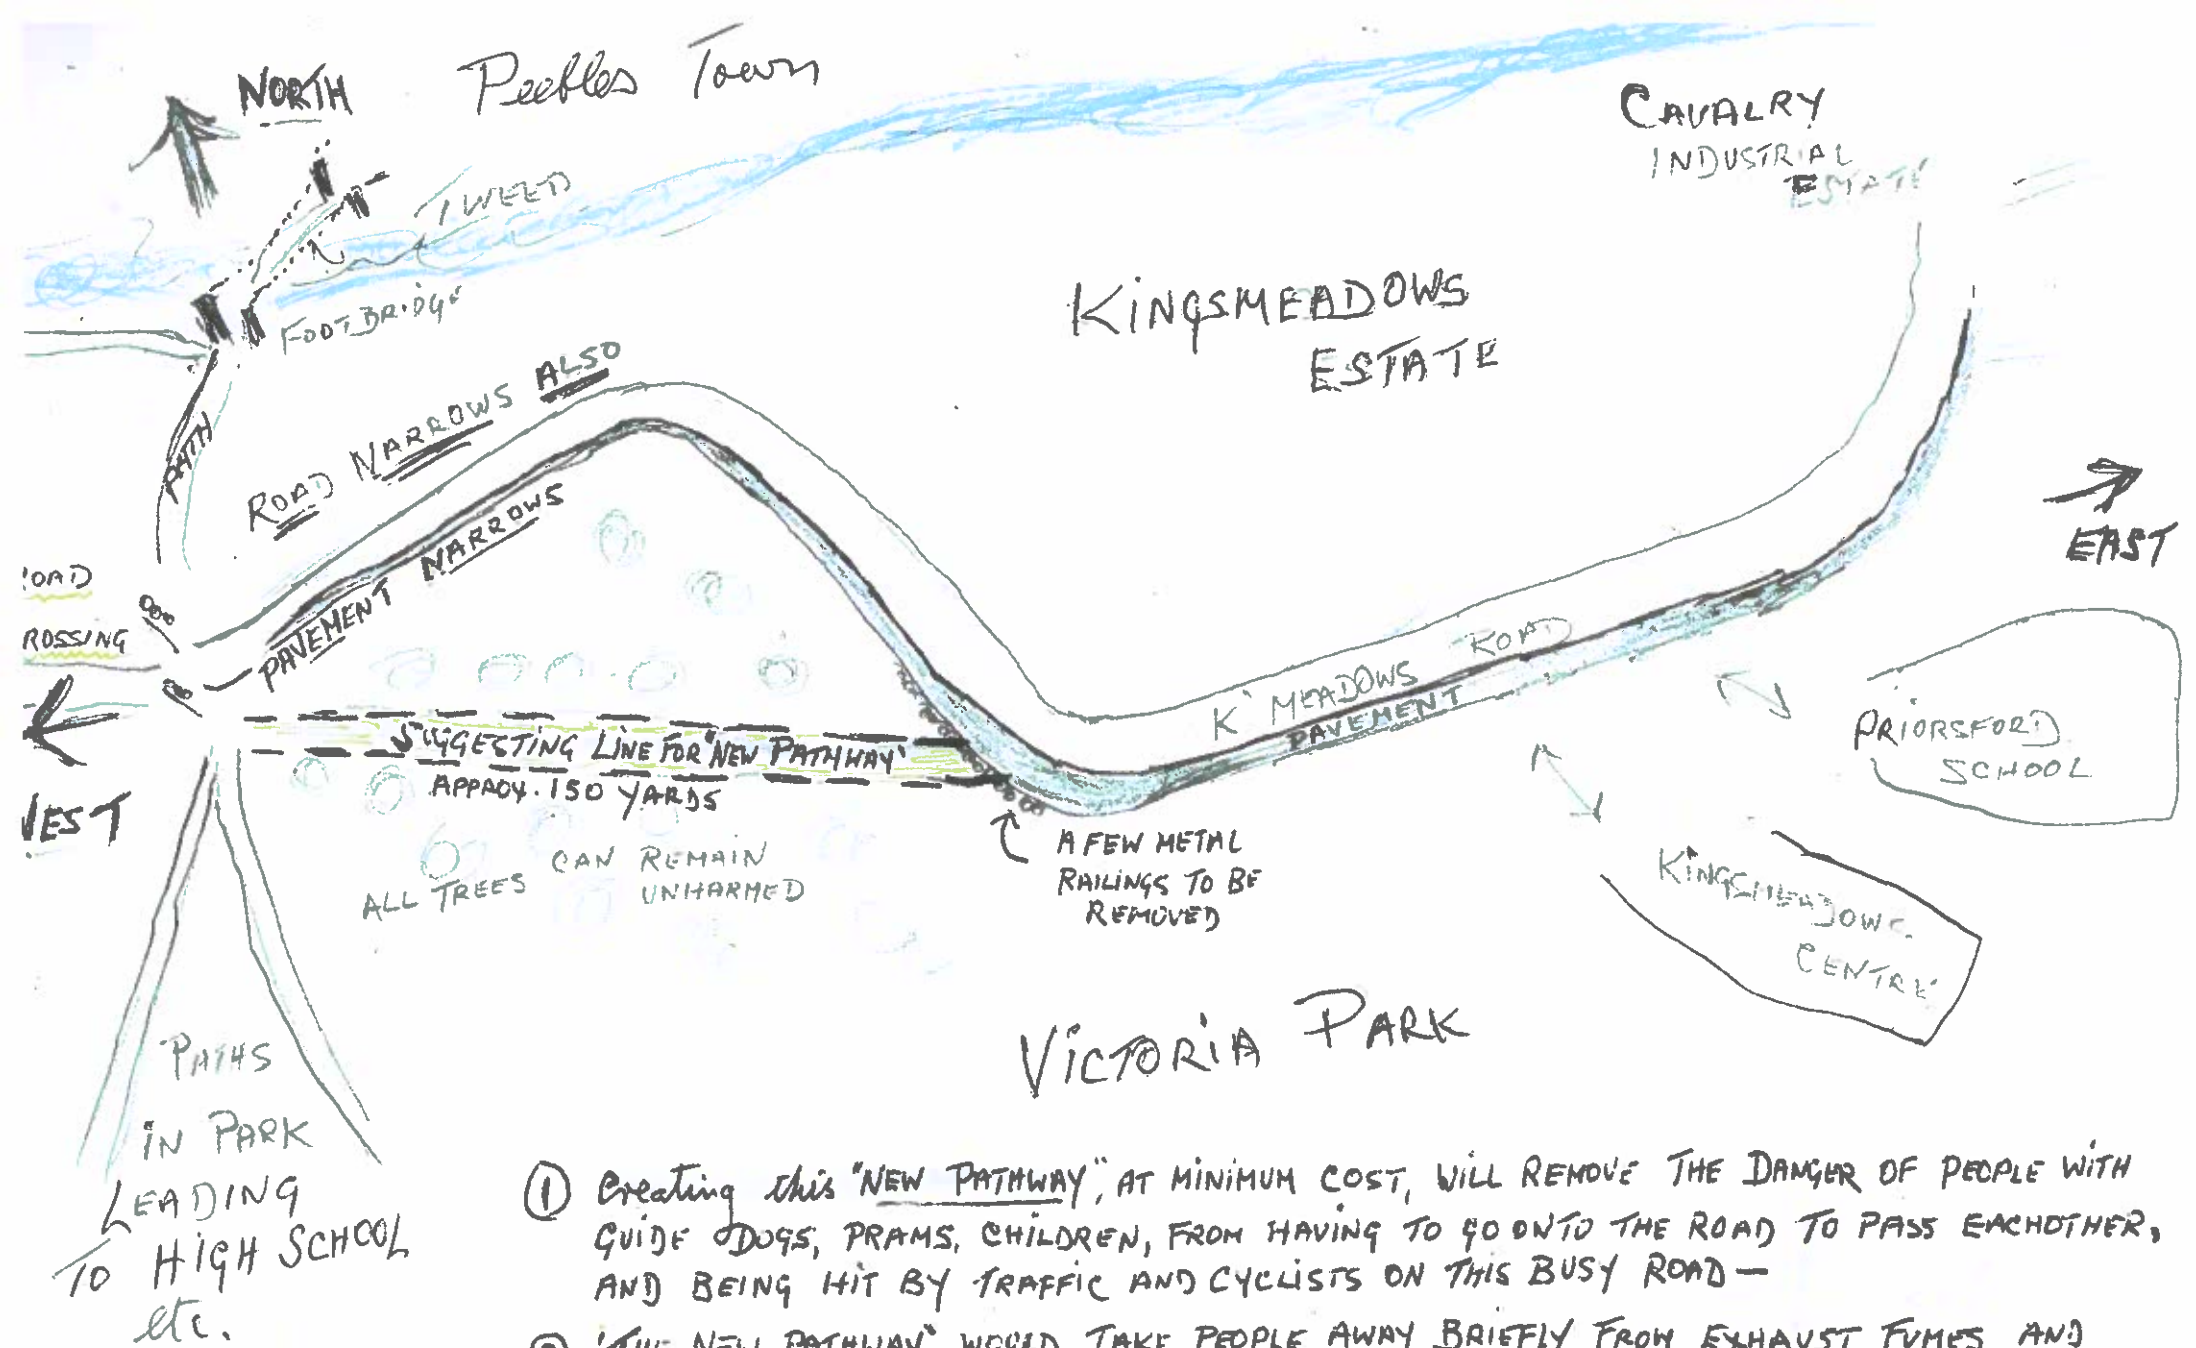 NORTH
Peebles Town
CAVALRY
INDUSTRIAL
ESTATE
TWEED
FOOTBRIDGE
KINGSMEADOWS
ESTATE
PATH
ROAD NARROWS ALSO
PAVEMENT NARROWS
EAST
OAD
ROSSING
K' MEADOWS ROAD
PAVEMENT
PRIORSFORD
SCHOOL
SUGGESTING LINE FOR "NEW PATHWAY"
APPROX. 150 YARDS
WEST
ALL TREES CAN REMAIN
UNHARMED
A FEW METAL
RAILINGS TO BE
REMOVED
KINGSMEADOWS
CENTRE
VICTORIA PARK
PATHS
IN PARK
LEADING
TO HIGH SCHOOL
etc.
① Creating this "NEW PATHWAY", AT MINIMUM COST, WILL REMOVE THE DANGER OF PEOPLE WITH
GUIDE DOGS, PRAMS, CHILDREN, FROM HAVING TO GO ONTO THE ROAD TO PASS EACHOTHER,
AND BEING HIT BY TRAFFIC AND CYCLISTS ON THIS BUSY ROAD —
② "THE NEW PATHWAY" WOULD TAKE PEOPLE AWAY BRIEFLY FROM EXHAUST FUMES AND